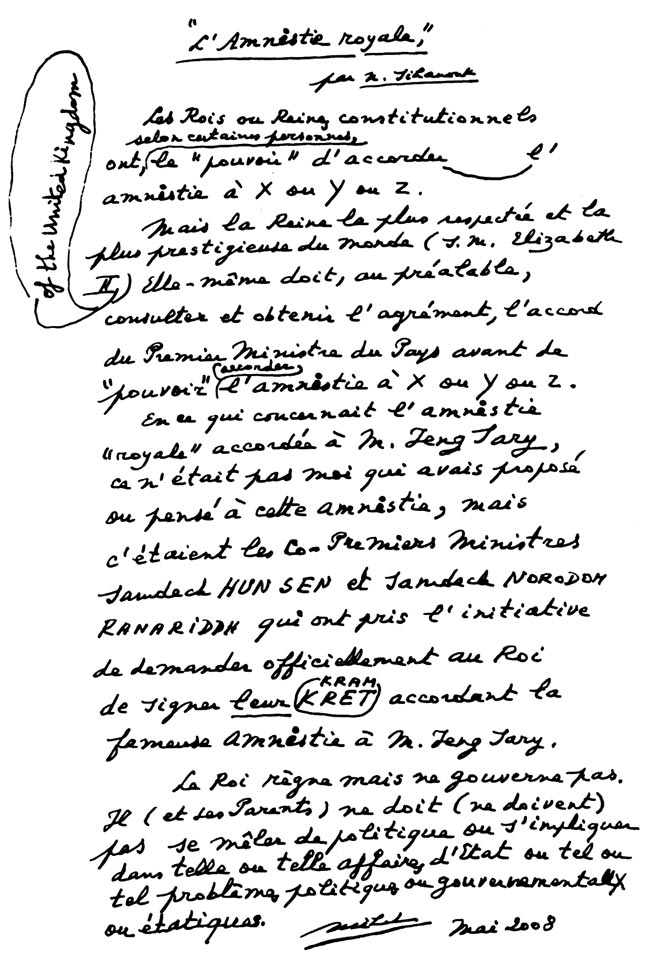 "L'Amnistie royale,"
par N. Sihanouk
Les Rois ou Reines constitutionnels
selon certaines personnes,
ont, le "pouvoir" d'accorder l'
amnistie à X ou Y ou Z.
Mais la Reine la plus respectée et la
plus prestigieuse du monde (S.M. Elizabeth
II,) Elle-même doit, au préalable,
of the United Kingdom
consulter et obtenir l'agrément, l'accord
du Premier Ministre du Pays avant de
accorder,
"pouvoir" l'amnistie à X ou Y ou Z.
En ce qui concernait l'amnistie
"royale" accordée à M. Ieng Sary,
ce n'était pas moi qui avais proposé
ou pensé à cette amnistie, mais
c'étaient les Co-Premiers Ministres
Samdech HUN SEN et Samdech NORODOM
RANARIDDH qui ont pris l'initiative
de demander officiellement au Roi
KRAM,
de signer leur KRET accordant la
fameuse Amnistie à M. Ieng Sary.
Le Roi règne mais ne gouverne pas.
Il (et ses Parents) ne doit (ne doivent)
pas se mêler de politique ou s'impliquer
dans telle ou telle affaires d'Etat ou tel ou
tel problèmes politiques ou gouvernementaux
ou étatiques.
Mai 2008